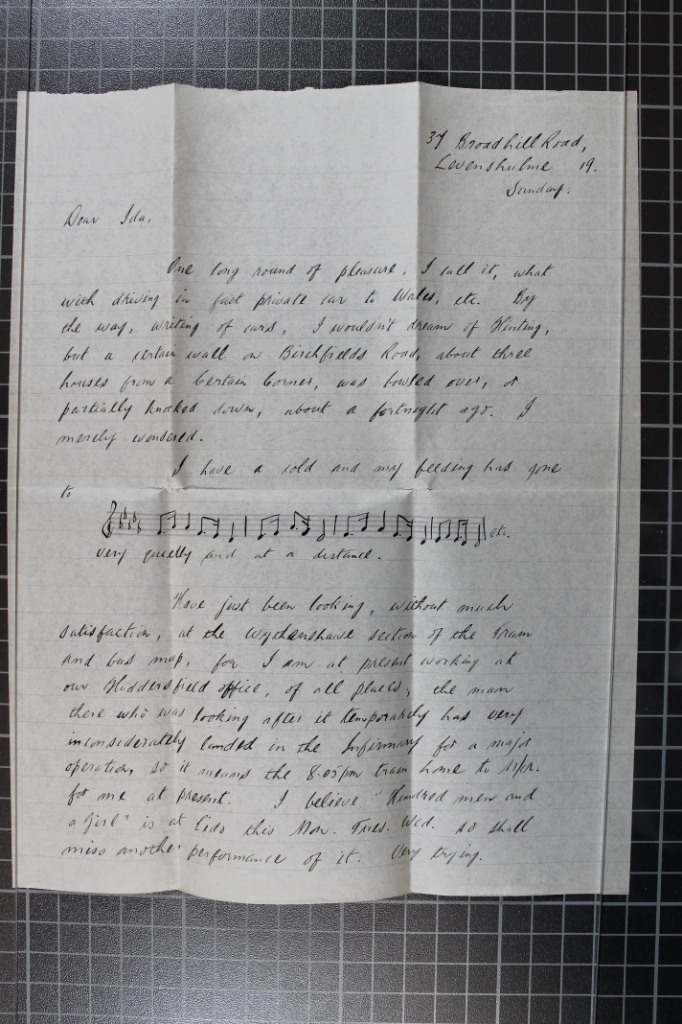 37 Broadhill Road,
Levenshulme 19.
Sunday.
Dear Ida,
One long round of pleasure, I call it, what
with driving in fast private car to Wales, etc. By
the way, writing of cars, I wouldn't dream of Hinting,
but a certain wall on Birchfields Road, about three
houses from a Certain Corner, was bowled over, or
partially knocked down, about a fortnight ago. I
merely wondered.
I have a cold and my feeding has gone
to
etc.
very quietly and at a distance.
Have just been looking, without much
satisfaction, at the Wythenshawe section of the Tram
and bus map, for I am at present working at
our Huddersfield office, of all places, the man
there who was looking after it temporarily has very
inconsiderately landed in the Infirmary for a major
operation, so it means the 8.05pm train home to M/r.
for me at present. I believe "Hundred men and
a Girl" is at Lido this Mon. Tues. Wed. so shall
miss another performance of it. Very trying.